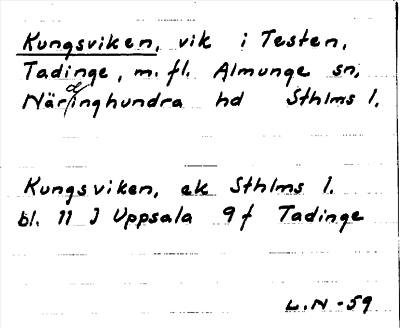 Kungsviken, vik i Testen,
Tadinge, m. fl. Almunge sn,
Närdinghundra hd Sthlms l.
Kungsviken, ek Sthlms l.
bl. 11 J Uppsala 9f Tadinge
L.N -59